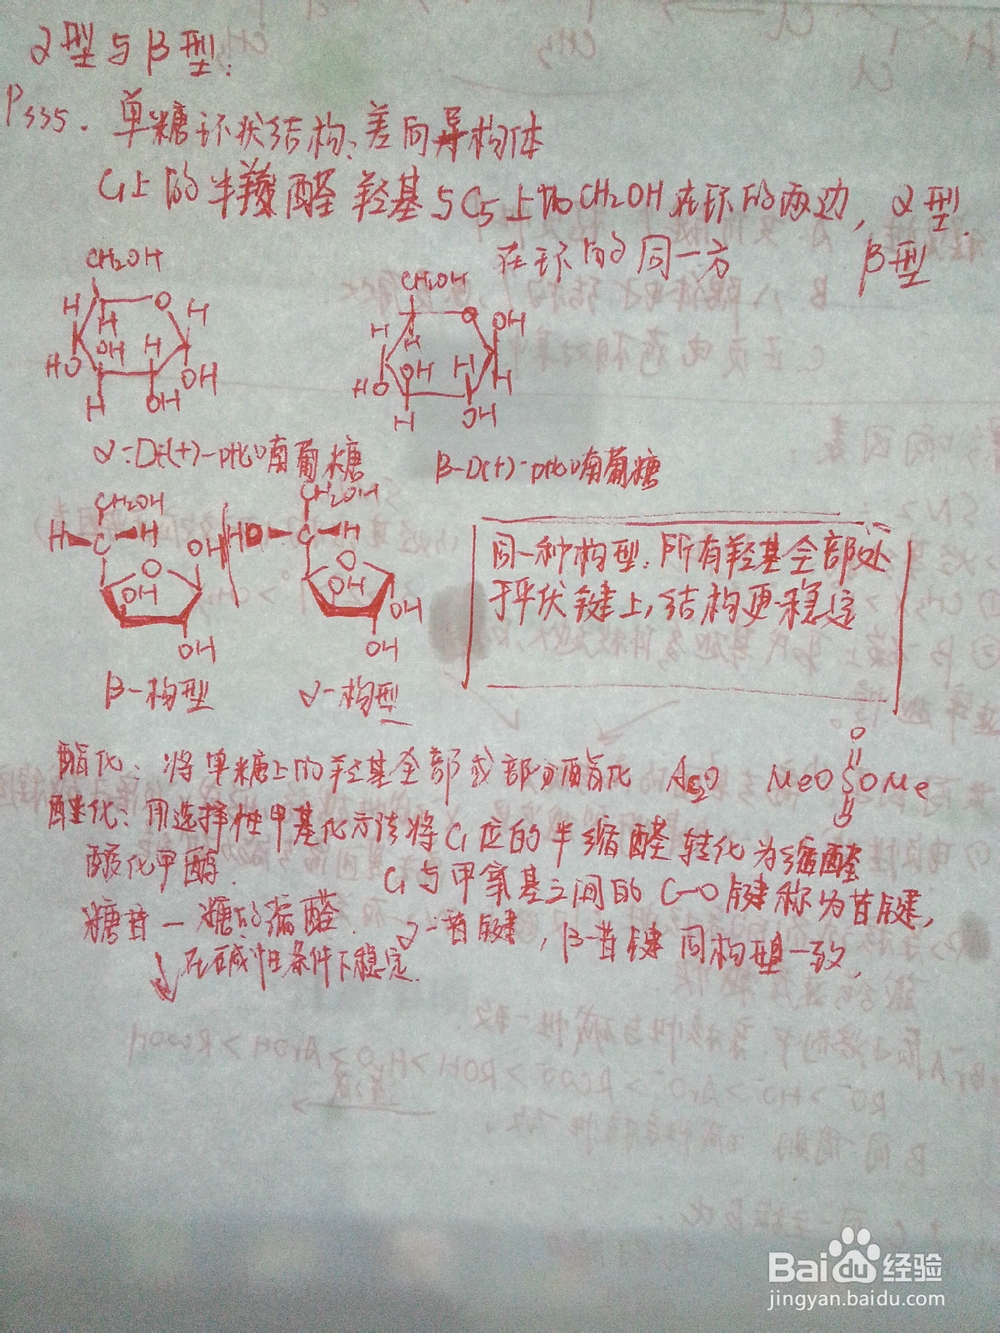 α型与β型:
P335. 单糖环状结构、差向异构体
C1上的半羧醛羟基与C5上的CH2OH在环的两边, α型.
在环的同一方 β型
CH2OH
H O H
H
HO OH H OH
H OH
CH2OH
H O OH
H
HO OH H H
H OH
α-D-(+)-吡喃葡萄糖
β-D(+)-吡喃葡萄糖
CH2OH
H C H
O OH
OH
OH
CH2OH
HO C H
O
OH OH
OH
β-构型
α-构型
同一种构型:所有羟基全部处
于平伏键上,结构更稳定
酯化: 将单糖上的羟基全部或部分酯化 Ac2O MeO S OMe
O
O
醚化: 用选择性甲基化方法将C1位的半缩醛转化为缩醛
酸化甲醇.
C1与甲氧基之间的C-O键称为苷键,
糖苷—糖的缩醛. α-苷键, β-苷键 同构型一致.
↓ 在碱性条件下稳定.
Baidu经验
jingyan.baidu.com